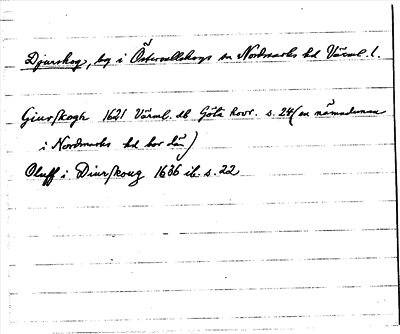 Djurskog, by i Östervallskogs sn Nordmarks hd Värml. l.
Giurskogh 1621 Värml. db Göta hovr. s. 24 (en nämndeman
i Nordmarks hd bor där)
Oluff i Diurskoug 1636 ib s. 22